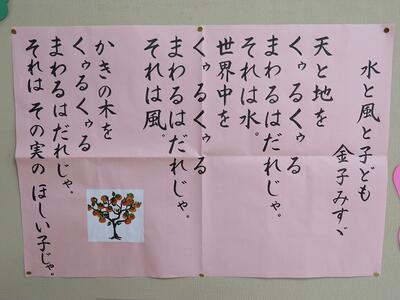 水と風と子ども
金子みすゞ
天と地を
くゥるくゥる
まわるはだれじゃ。
それは水。
世界中を
くゥるくゥる
まわるはだれじゃ。
それは風。
かきの木を
くゥるくゥる
まわるはだれじゃ。
それは その実の ほしい子じゃ。